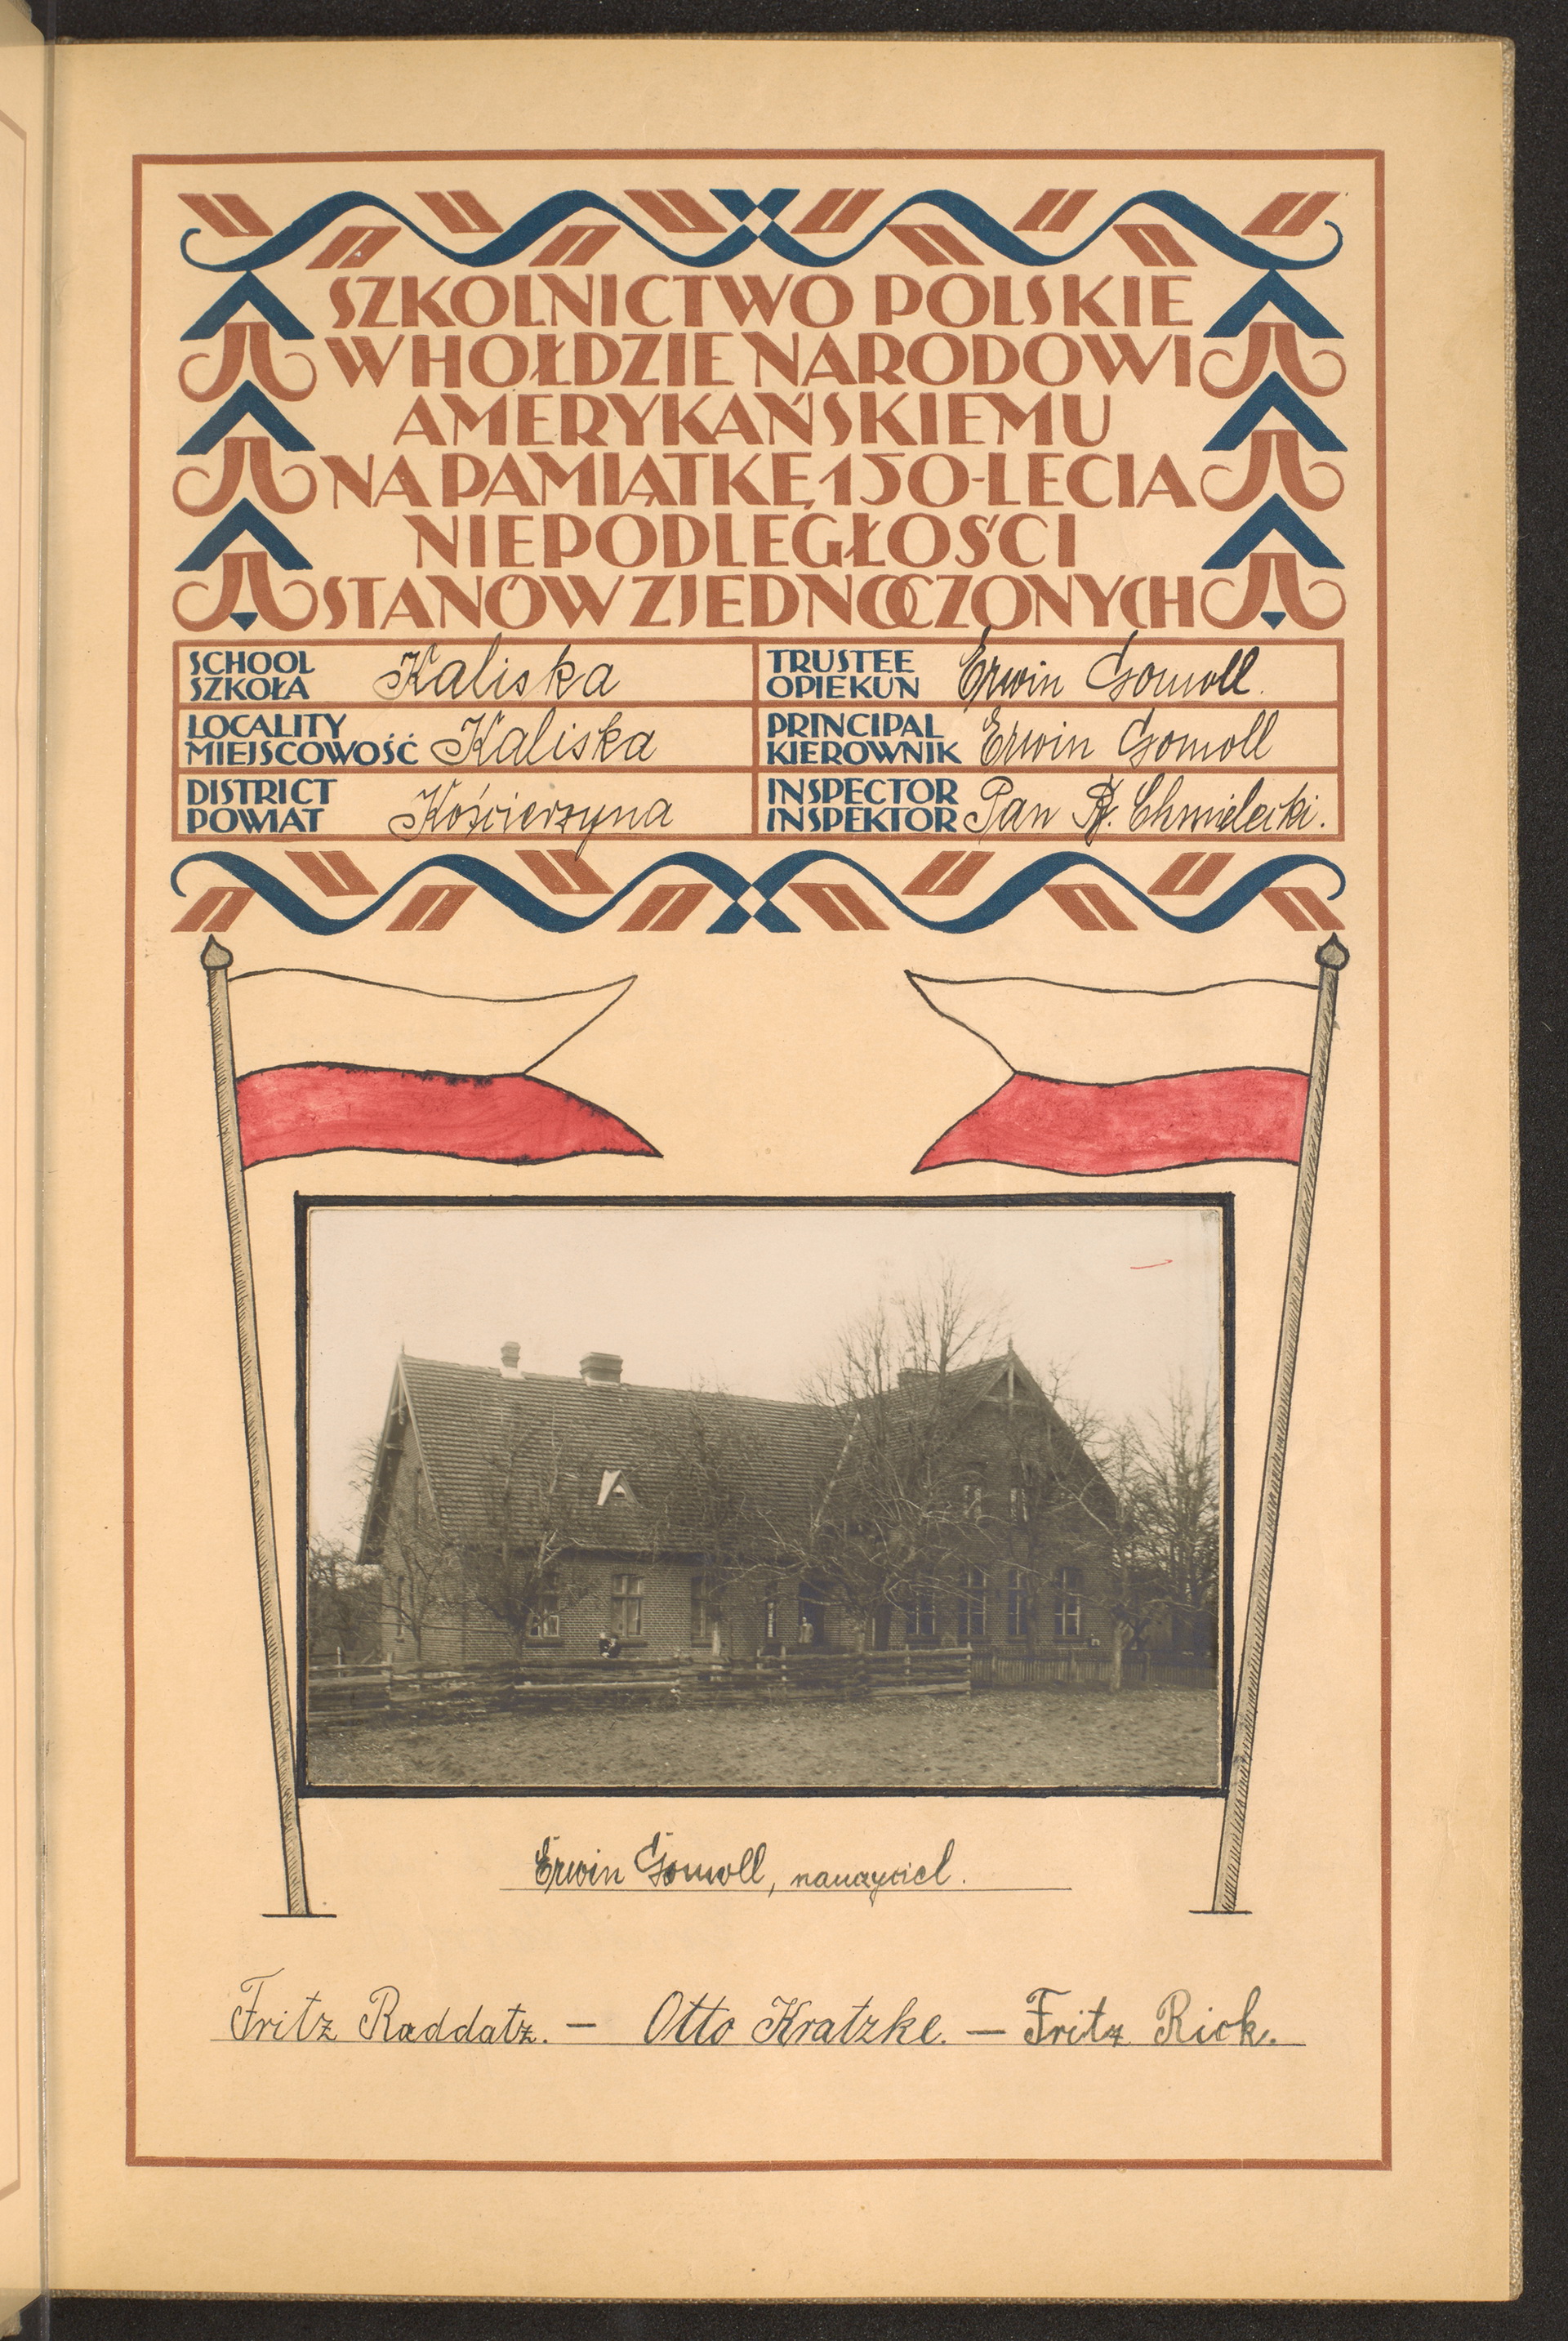 SZKOLNICTWO POLSKIE
W HOŁDZIE NARODOWI
AMERYKAŃSKIEMU
NA PAMIĄTKĘ 150-LECIA
NIEPODLEGŁOŚCI
STANÓW ZJEDNOCZONYCH
SCHOOL
SZKOŁA Kaliska
TRUSTEE
OPIEKUN Erwin Gomoll.
LOCALITY
MIEJSCOWOŚĆ Kaliska
PRINCIPAL
KIEROWNIK Erwin Gomoll
DISTRICT
POWIAT Kościerzyna
INSPECTOR
INSPEKTOR Pan Chmielecki.
Erwin Gomoll, nauczyciel.
Fritz Raddatz. – Otto Kratzke. – Fritz Rick.